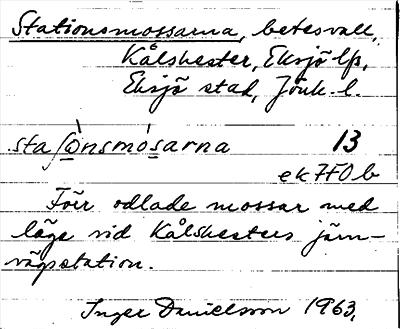 Stationsmossarna, betesvall,
Kålshester, Eksjö lfs,
Eksjö stad, Jönk. l.
sta∫ònsmósarna 13
ek 7F0b
Förr odlade mossar med
läge vid Kålshesters järn-
vägsstation.
Inger Danielsson 1963.